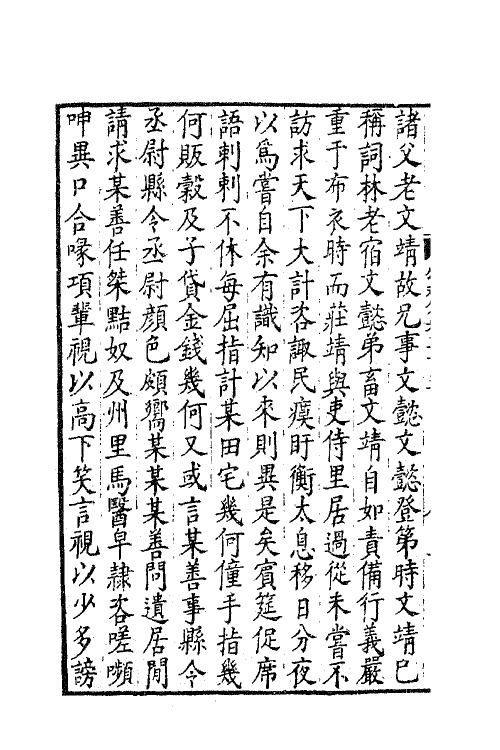 諸父老文靖故兄事文懿文懿登第時文靖已
稱詞林老宿文懿弟畜文靖自如責備行義嚴
重于布衣時而莊靖與吏侍里居過從未嘗不
訪求天下大計咨諏民瘼盱衡太息移日分夜
以爲嘗自余有識知以來則異是矣賓筵促席
語刺刺不休每屈指計某田宅幾何僮手指幾
何販糓及子貸金錢幾何又或言某善事縣令
丞尉縣令丞尉顔色頗嚮某某某善問遺居閒
請求某善任桀黠奴及州里馬醫皁隷咨嗟嚬
呻異口合喙項輩視以高下笑言視以少多謗